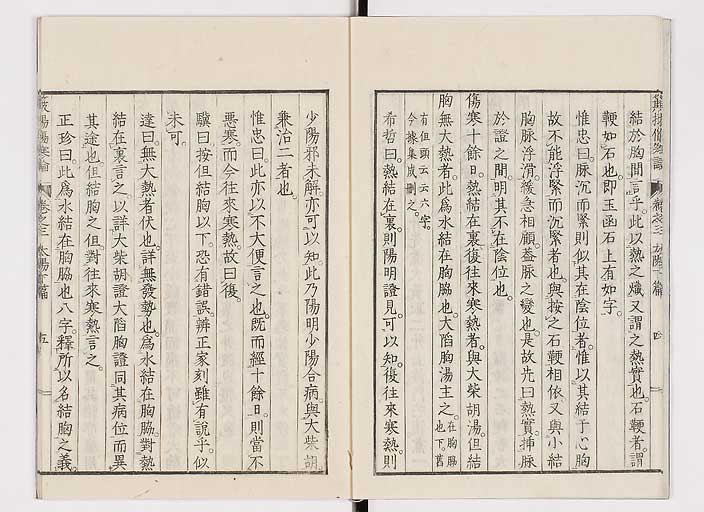 結於胸間言乎此以熱之熾又謂之熱實也石鞕者謂
鞕如石也卽玉函石上有如字
惟忠曰脈沉而緊則似其在陰位者惟以其結于心胸
故不能浮緊而沉緊者也與按之石鞕相依又與小結
胸脈浮滑緩急相顧蓋脈之變也是故先曰熱實揷脈
於證之間明其不在陰位也
傷寒十餘日熱結在裏復往來寒熱者與大柴胡湯但結
胸無大熱者此爲水結在胸脇也大陷胸湯主之在胸脇也下舊
有但頭云云六字
今據集成刪之
希哲曰熱結在裏則陽明證見可以知復往來寒熱則
少陽邪未解亦可以知此乃陽明少陽合病與大柴胡
兼治二者也
惟忠曰此亦以不大便言之也既而經十餘日則當不
惡寒而今往來寒熱故曰復
驥曰按但結胸以下恐有錯誤辨正家刻雖有說乎似
未可
逵曰無大熱者伏也詳無發勢也爲水結在胸脇對熱
結在裏言之以詳大柴胡證大陷胸證同其病位而異
其途也但結胸之但對往來寒熱言之
正珍曰此爲水結在胸脇也八字釋所以名結胸之義
傷寒論 卷之三 太陽下篇 五